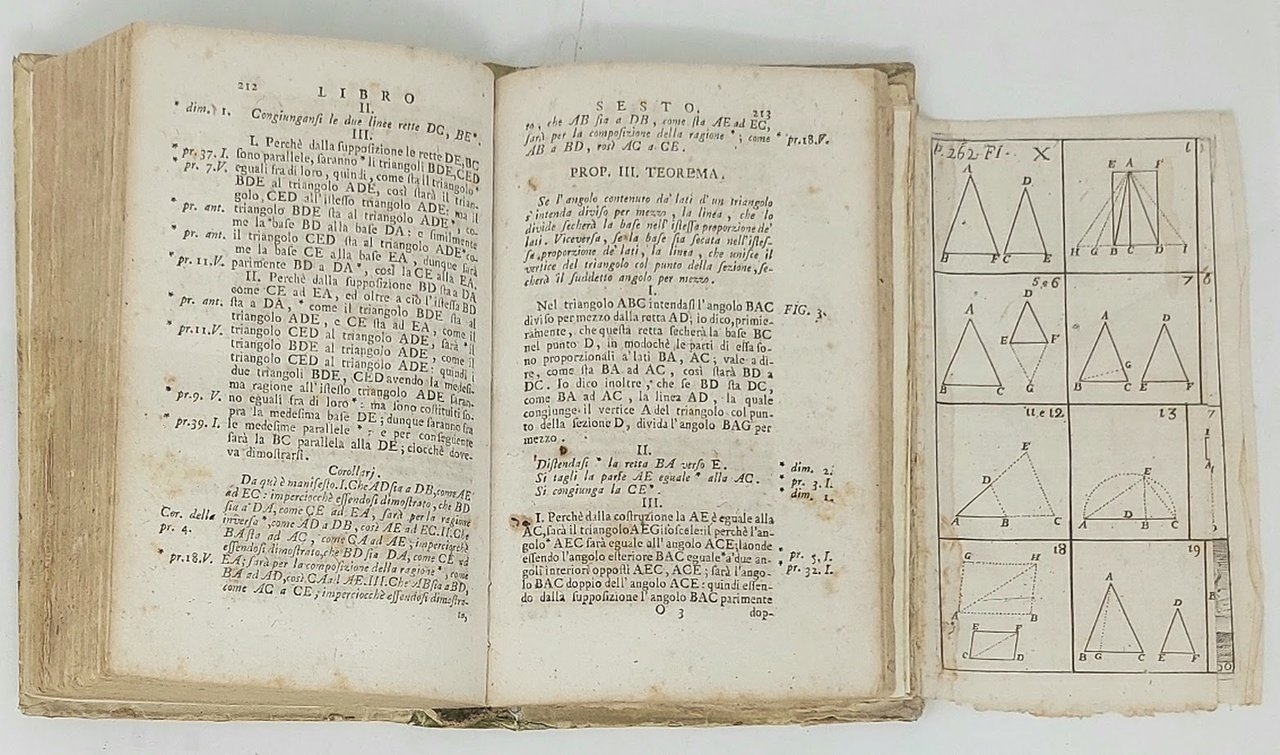 212
LIBRO
II.
* dim. 1. Congiungansi le due linee rette DC, BE*.
III.
I. Perchè dalla supposizione le rette DE, BC
* pr. 37. I. sono parallele, saranno * li triangoli BDE, CED
* pr. 7.V. eguali fra di loro, quindi, come sta il triangolo*
BDE al triangolo ADE, così starà il trian-
golo CED all'istesso triangolo ADE: ma il
* pr. ant. triangolo BDE sta al triangolo ADE*, co-
me la base BD alla base DA: e similmente
* pr. ant. il triangolo CED sta al triangolo ADE* co-
me la base CE alla base EA, dunque sarà
* pr. 11.V. parimente BD a DA*, così la CE alla EA.
II. Perchè dalla supposizione BD sta a DA
come CE ad EA, ed oltre a ciò l'istessa BD
* pr. ant. sta a DA, * come il triangolo BDE sta al
triangolo ADE, e CE sta ad EA, come il
* pr. 11.V. triangolo CED al triangolo ADE, sarà * il
triangolo BDE al triangolo ADE, come il
triangolo CED al triangolo ADE: quindi i
due triangoli BDE, CED avendo la medesi-
ma ragione all'istesso triangolo ADE saran-
* pr. 9. V. no eguali fra di loro*: ma sono costituiti so-
pra la medesima base DE; dunque saranno fra
* pr. 39. I. le medesime parallele *: e per conseguente
sarà la BC parallela alla DE; ciocchè dove-
va dimostrarsi.
Corollarj.
Da quì è manifesto. I. Che AD sia a DB, come AE
ad EC: imperciocchè essendosi dimostrato, che BD
sia a DA, come CE ad EA, sarà per la ragione
Cor. della inversa*, come AD a DB, così AE ad EC. II. Che
pr. 4. BA sta ad AC, come CA ad AE; imperciocchè
essendosi dimostrato, che BD sia DA, come CE ad
* pr. 18.V. EA; sarà per la composizione della ragione*, come
BA ad AD, così CA ad AE. III. Che AB sia a BD,
come AC a CE; imperciocchè essendosi dimostra-
to,
SESTO.
213
to, che AB sia a DB, come sta AE ad EC,
sarà per la composizione della ragione *; come * pr. 18.V.
AB a BD, così AC a CE.
PROP. III. TEOREMA.
Se l'angolo contenuto da' lati d'un triangolo
s'intenda diviso per mezzo, la linea, che lo
divide secherà la base nell'istessa proporzione de'
lati. Viceversa, se la base sia secata nell'istes-
sa proporzione de' lati, la linea, che unisce il
vertice del triangolo col punto della sezione, se-
cherà il suddetto angolo per mezzo.
I.
Nel triangolo ABC intendasi l'angolo BAC FIG. 3.
diviso per mezzo dalla retta AD; io dico, primie-
ramente, che questa retta secherà la base BC
nel punto D, in modochè le parti di essa so-
no proporzionali a' lati BA, AC; vale a di-
re, come sta BA ad AC, così starà BD a
DC. Io dico inoltre, che se BD sta DC,
come BA ad AC, la linea AD, la quale
congiunge il vertice A del triangolo col pun-
to della sezione D, divida l'angolo BAG per
mezzo.
II.
Distendasi * la retta BA verso E. * dim. 2.
Si tagli la parte AE eguale * alla AC. * pr. 3. I.
Si congiunga la CE*. * dim. 1.
III.
I. Perchè dalla costruzione la AE è eguale alla
AC, sarà il triangolo AEG isoscele: il perchè l'an-
golo* AEC sarà eguale all' angolo ACE; laonde * pr. 5. I.
essendo l'angolo esteriore BAC eguale* a' due an- * pr. 32. I.
goli interiori opposti AEC, ACE; sarà l'ango-
lo BAC doppio dell' angolo ACE: quindi essen-
do dalla supposizione l'angolo BAC parimente
O 3 dop-
P. 262 FI. X
A D
B F C E
6
E A F
H G B C D I
5, e 6
A D
E F
B C
G
7
A D
G
B C E F
11, e 12
E
D
A B C
13
E
D
A B C
7
18
G H
A B
E F
C D
19
A
D
B G C E F